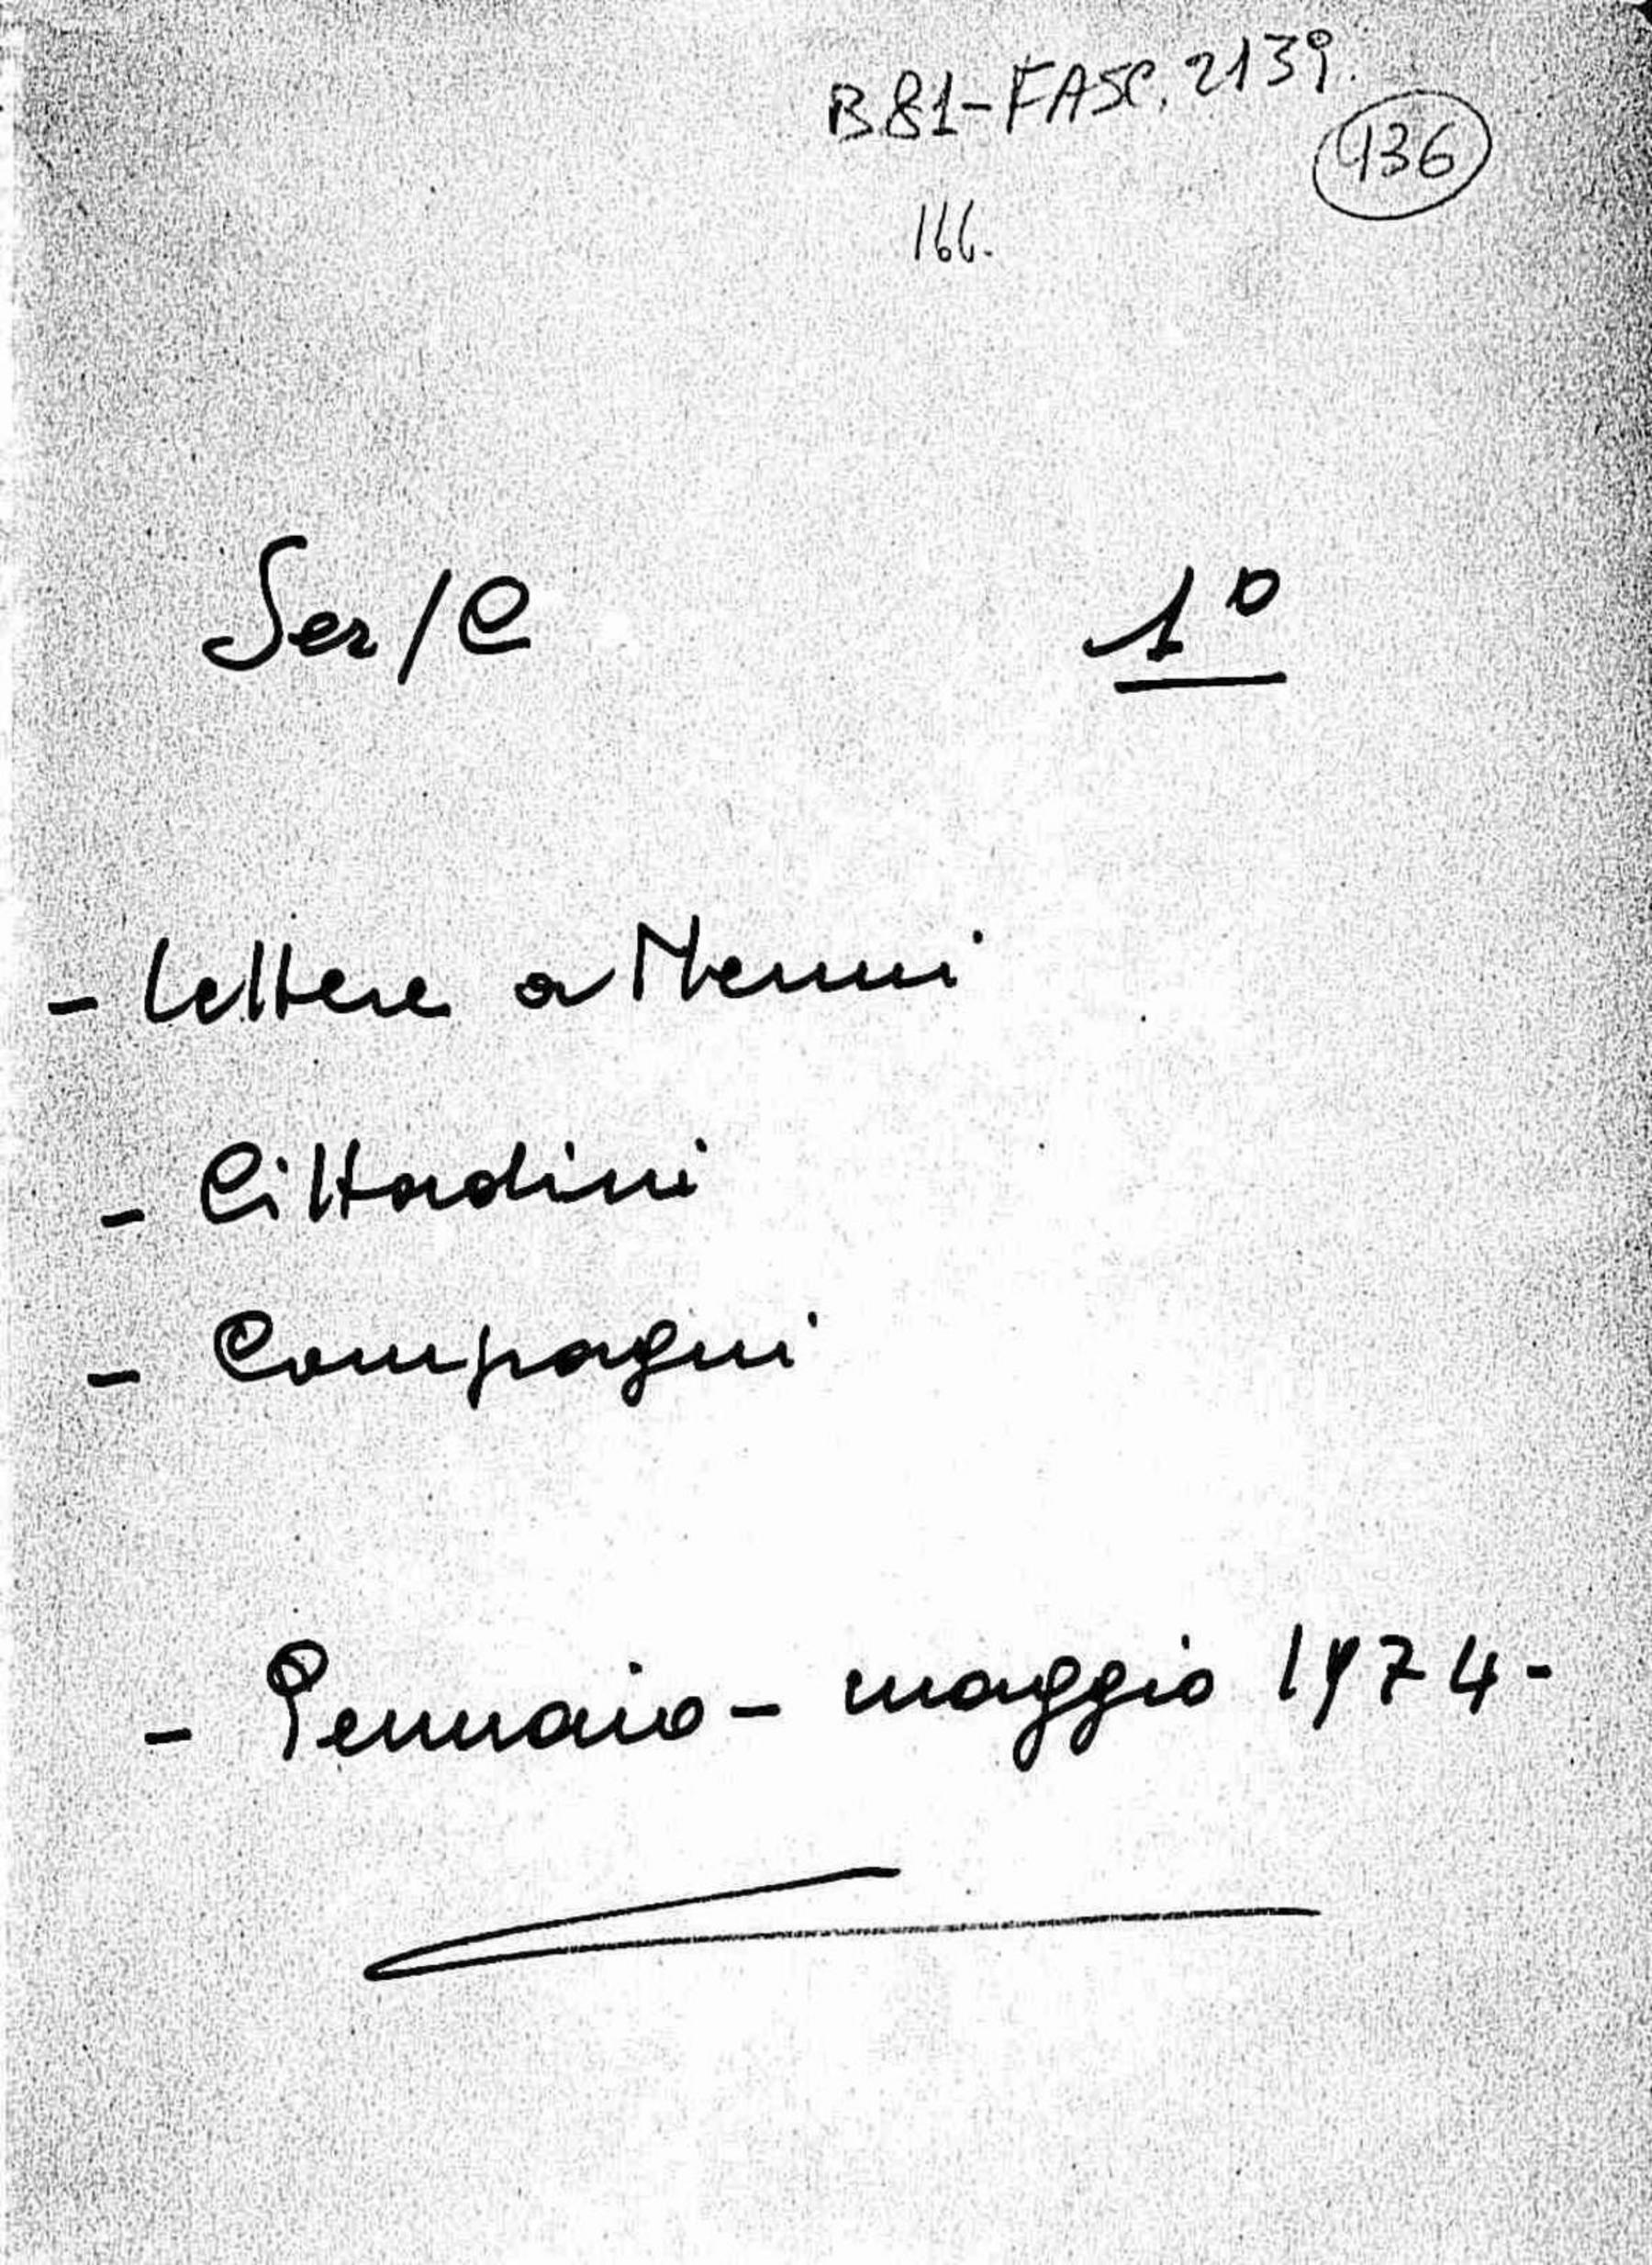 B81-FASC. 2139
936
166.
Ser/C 1º
- Lettere a Nenni
- Cittadini
- Compagni
- Gennaio - maggio 1974 -